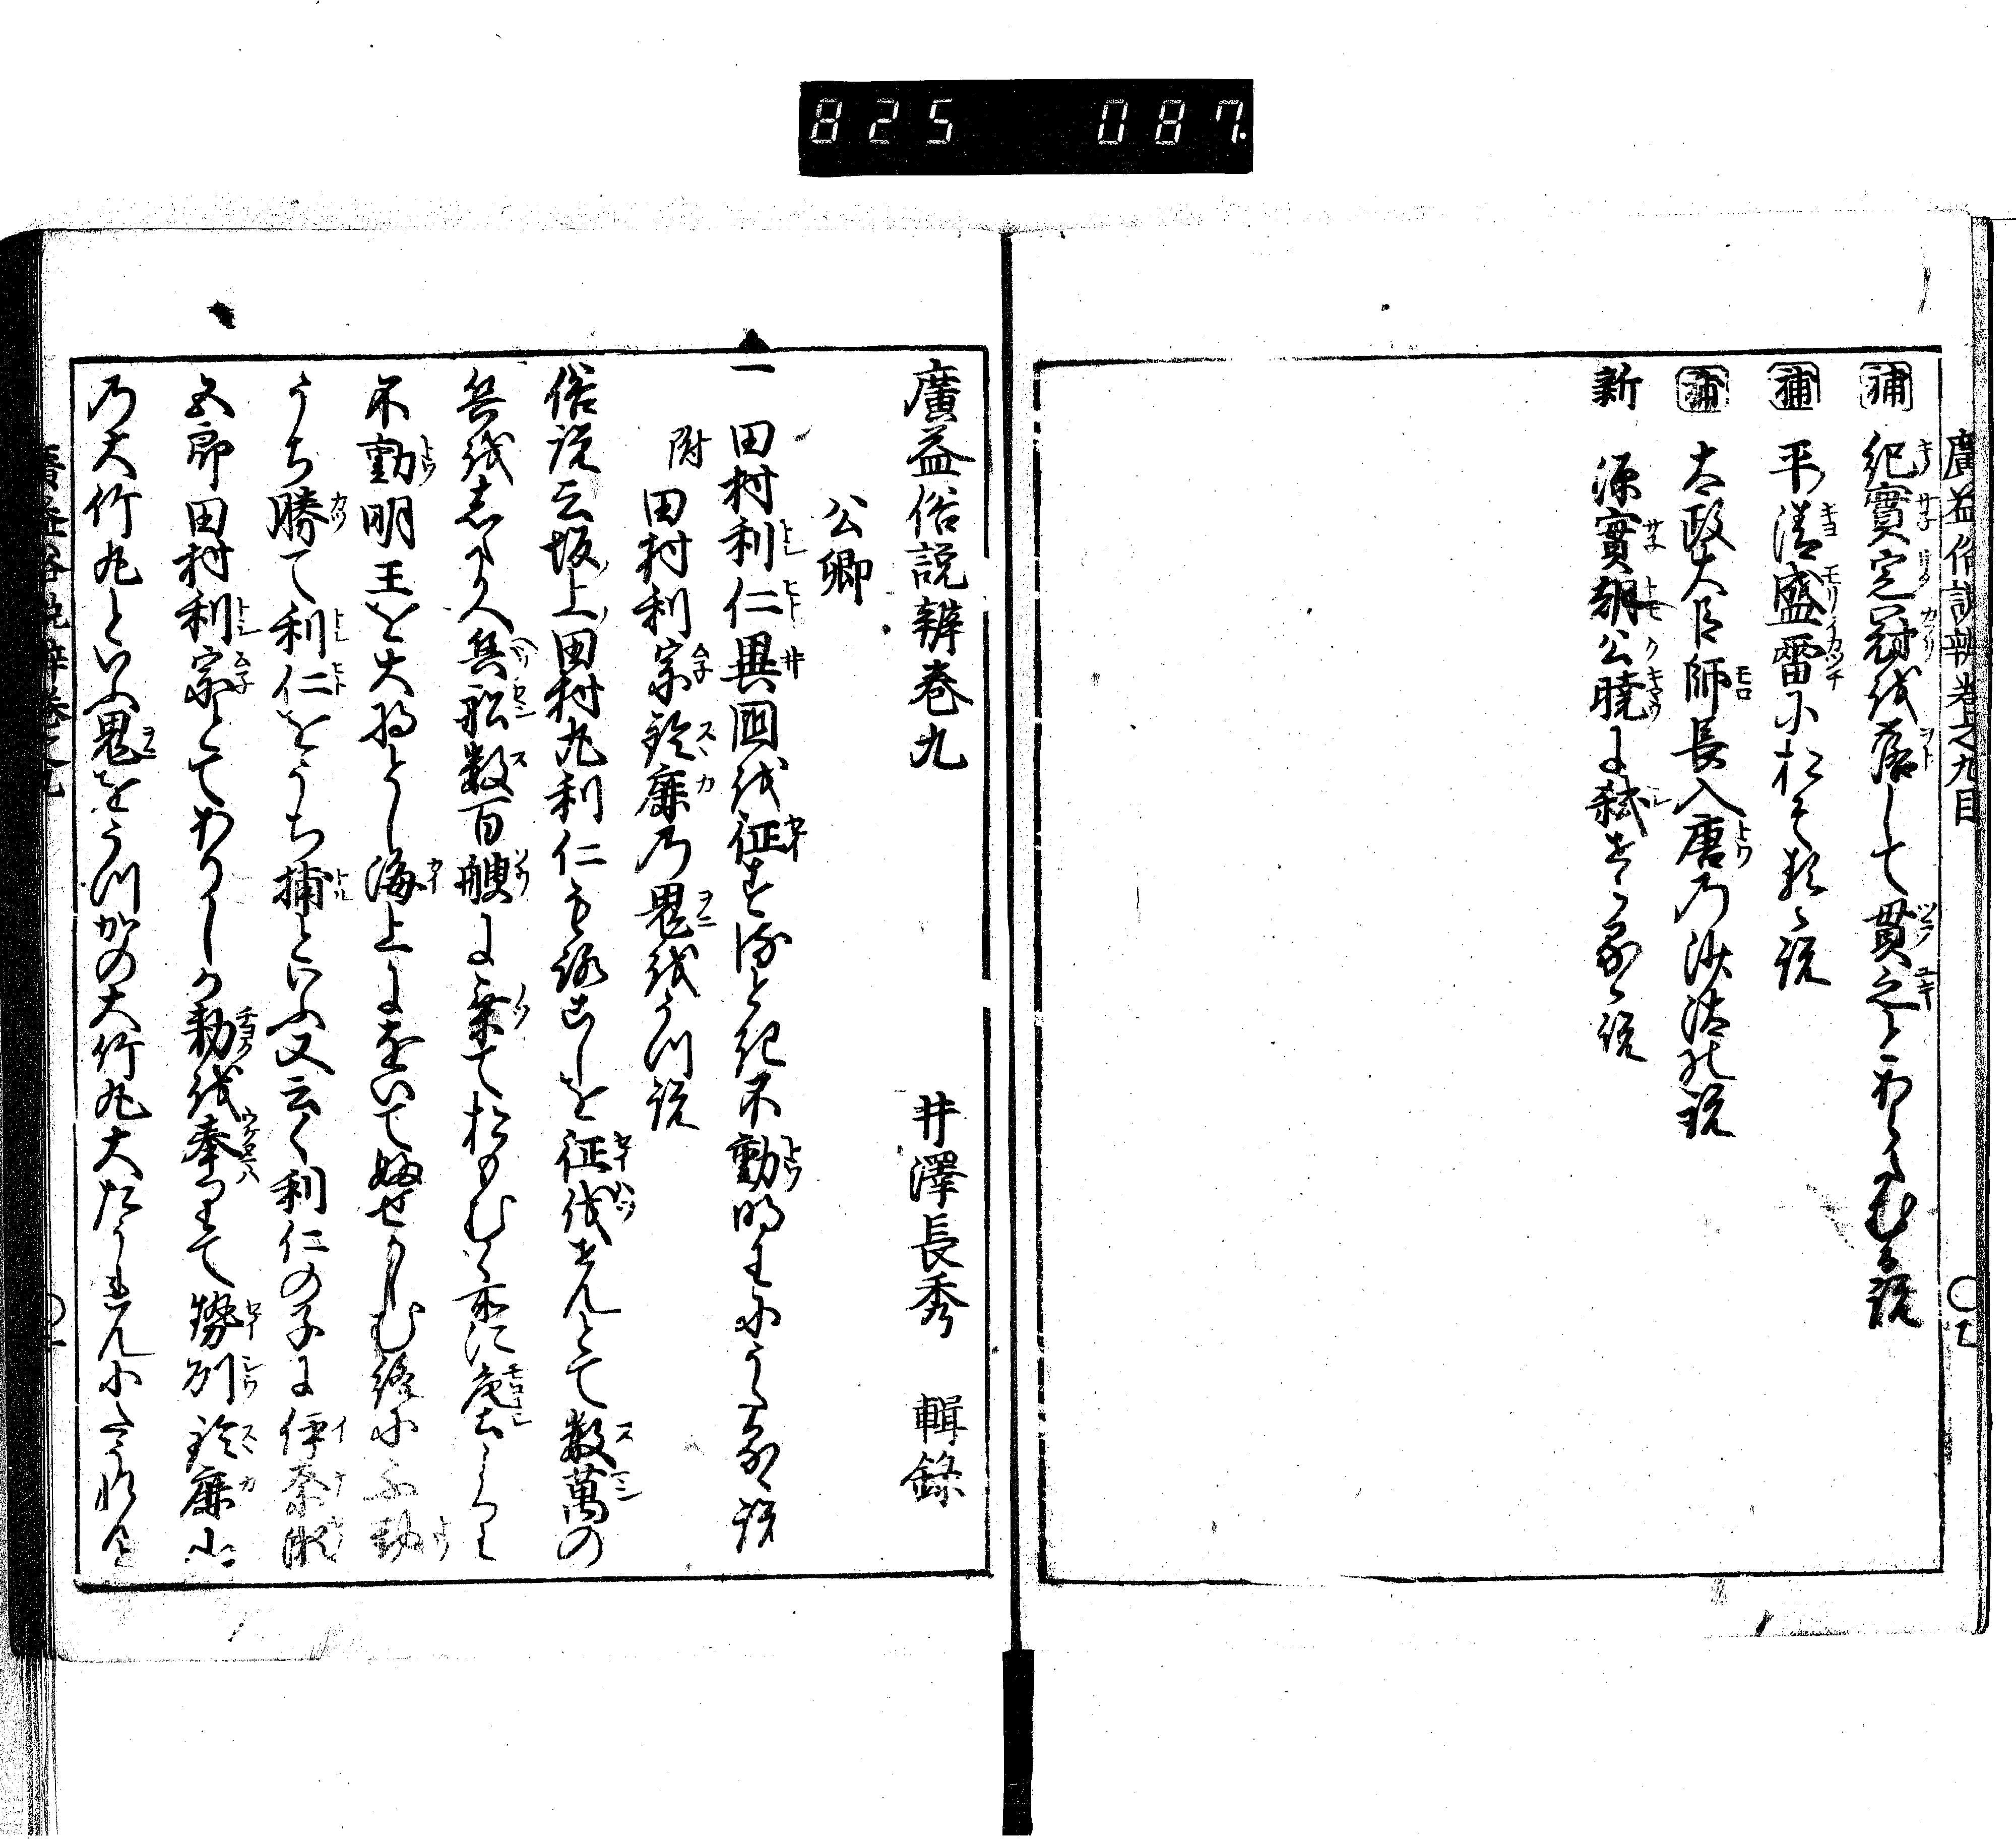 825 087
廣益俗説辨巻之九目
補 紀實定冠を落して貫之とあらたむる説
補 平清盛雷におそるゝ説
補 太政大臣師長入唐の沙汰の説
新 源實朝公暁に弑せらるゝ説
廣益俗説辨巻九
井澤長秀 輯錄
公卿
一 田村利仁異國を征するとき不動明王にうたるゝ説
附 田村利宗鈴鹿の鬼をうつ説
俗説云坂上田村丸利仁もろこしを征伐せんとて数萬の
兵をしたかへ兵船数百艘に乗ておもむく
不動明王を大将とし海上にをいて
うち勝て利仁をうち捕といふ又云く利仁の子に伊奈瀬
五郎田村利宗とてありしか勅を奉りて勢州鈴鹿山
の大竹丸といふ鬼をうつかの大竹丸